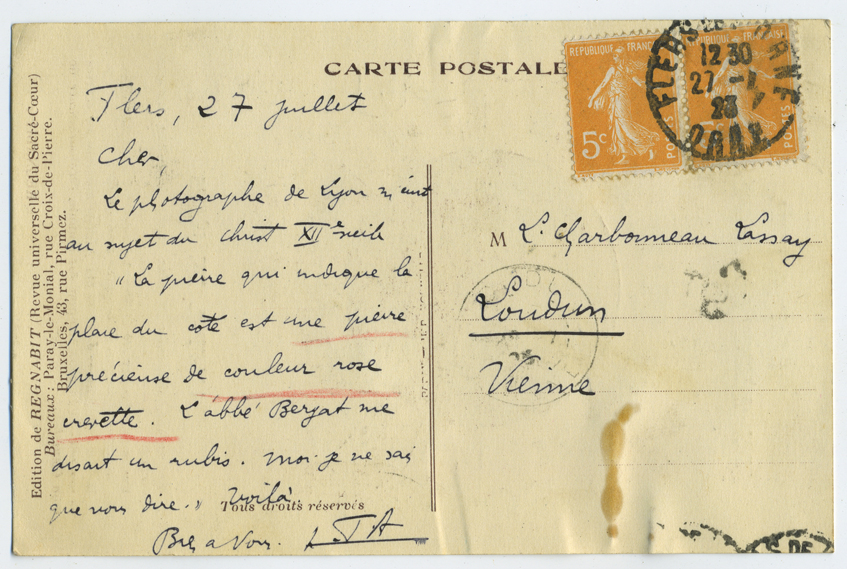 CARTE POSTALE
Edition de REGNABIT (Revue universelle du Sacré-Cœur)
Bureaux : Paray-le-Monial, rue Croix-de-Pierre.
Bruxelles, 43, rue Pirmez.
Flers, 27 juillet
Cher,
Le photographe de Lyon m'écrit
au sujet du Christ XIIe siècle
"La pierre qui indique la
place du cœur est une pierre
précieuse de couleur rose
crevette. L'abbé Bergat me
disait un rubis. Moi je ne sais
que vous dire." Voilà
Tous droits réservés
Bien à vous.
REPUBLIQUE FRANC
5c
POSTES
REPUBLIQUE FRANÇAISE
POSTES
FLERS
12 30
27 -
23
ORNE
M L. Charbonneau Lassay
Loudun
Vienne